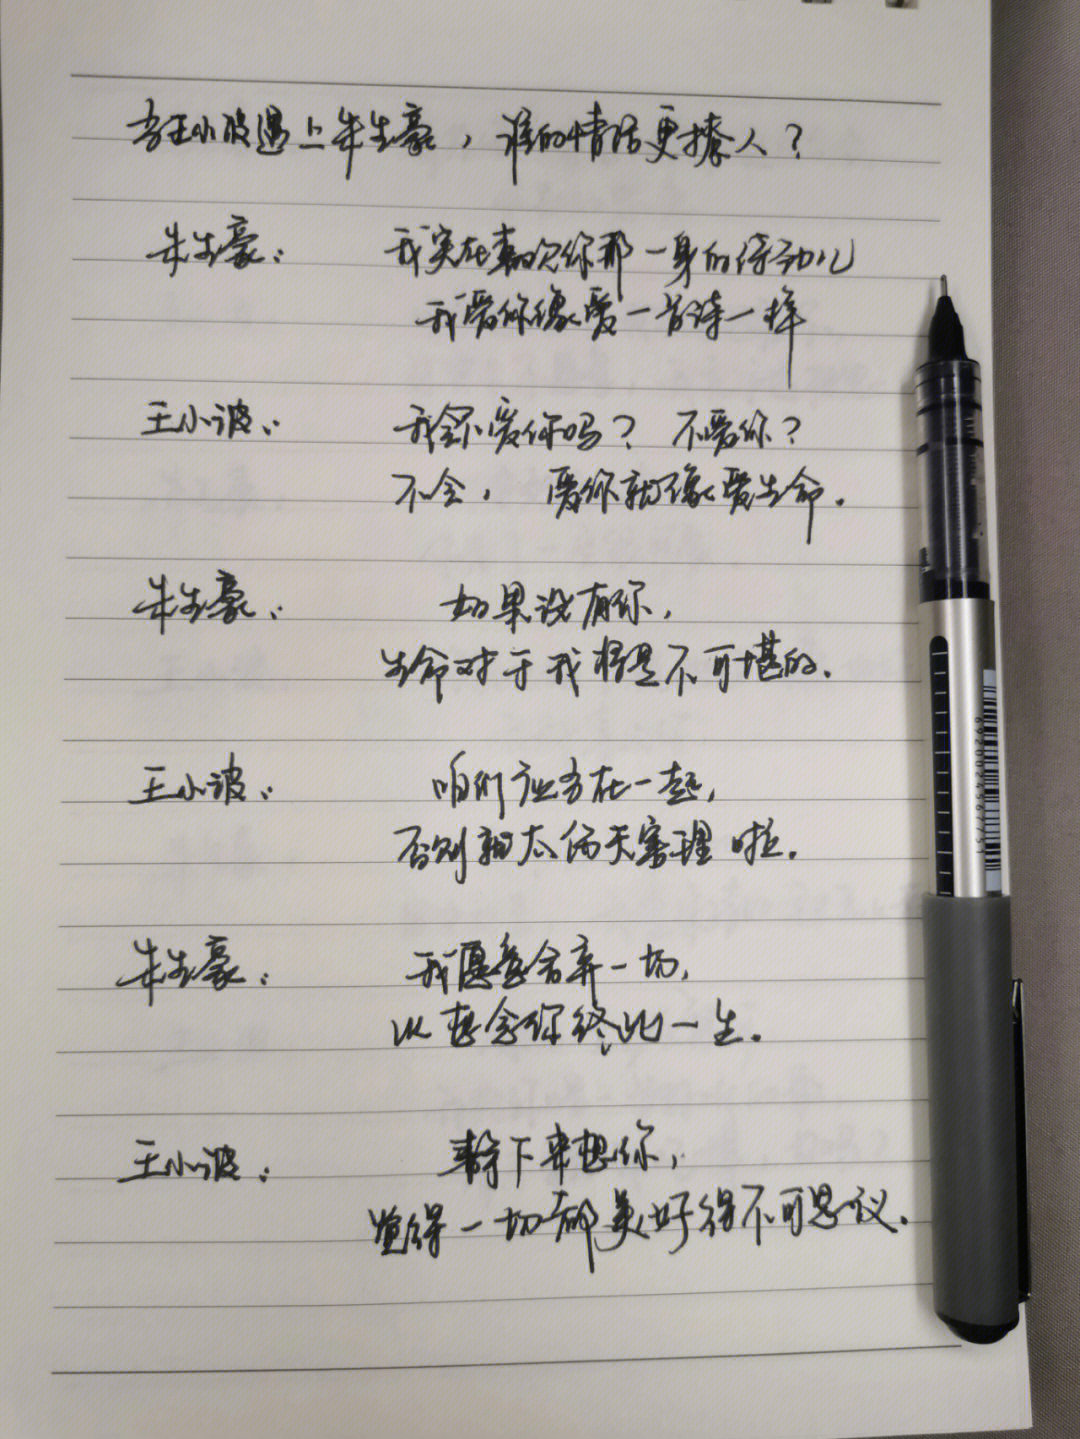 当王小波遇上朱生豪，谁的情话更撩人？
朱生豪： 我实在喜欢你那一身的诗劲儿
我爱你像爱一首诗一样
王小波： 我会不爱你吗？不爱你？
不会，爱你就像爱生命。
朱生豪： 如果没有你，
生命对于我将是不可堪的。
王小波： 咱们应当在一起，
否则就太伤天害理啦。
朱生豪： 我愿意舍弃一切，
以想念你终此一生。
王小波： 静下来想你，
觉得一切都美好得不可思议。